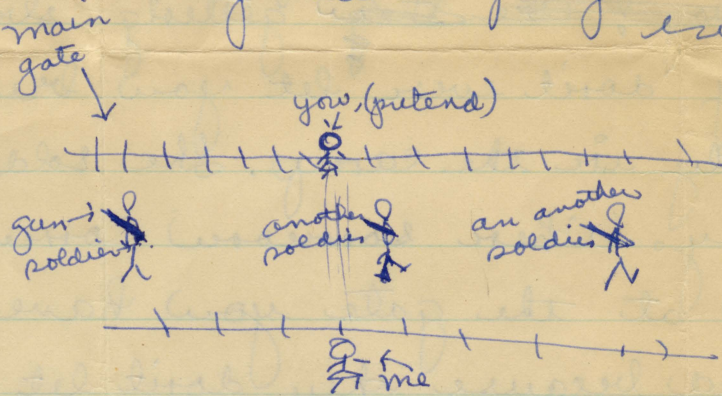 main
gate
you, (pretend)
gun
soldier
another
soldier
an another
soldier
me